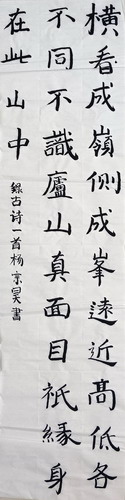 橫看成嶺側成峯遠近高低各
不同不識廬山真面目祇緣身
在此山中
錄古诗一首杨京昊書